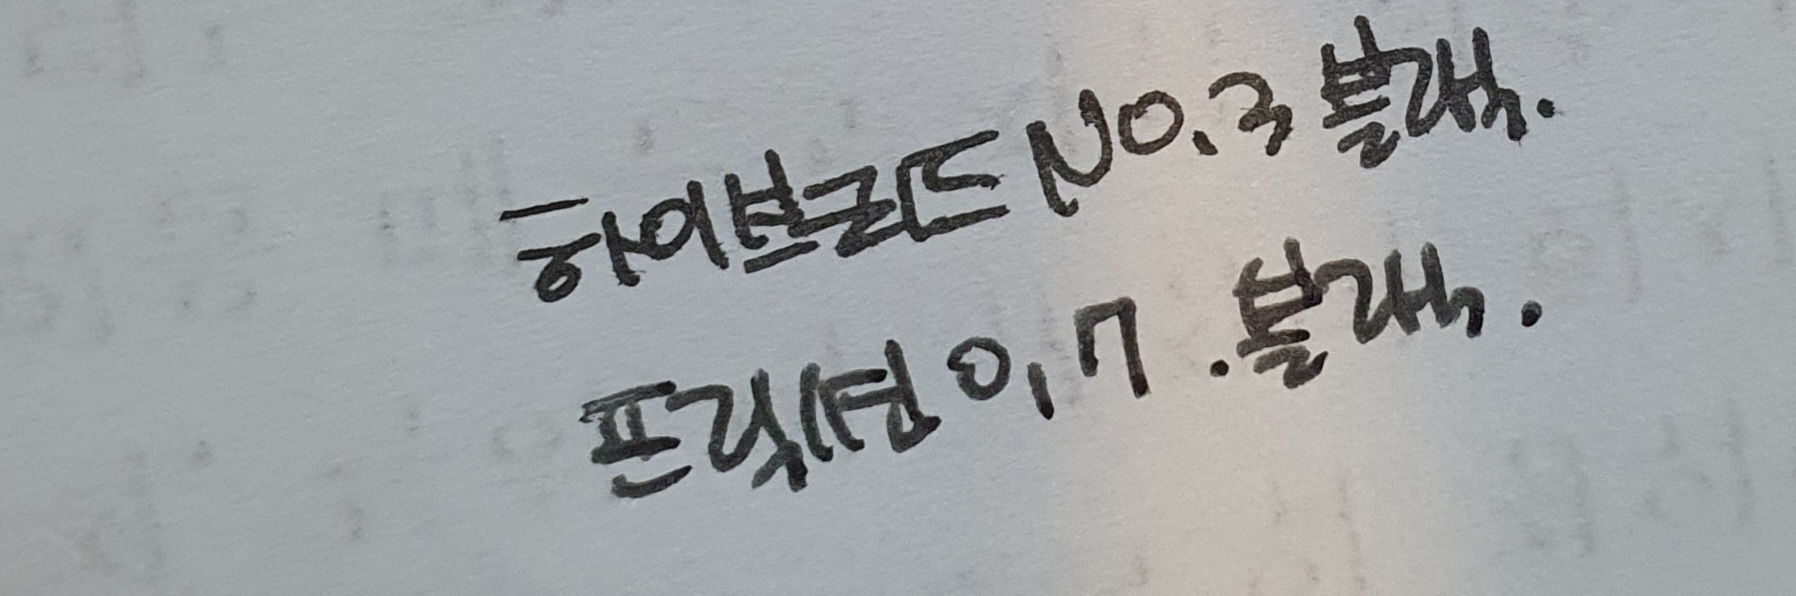 하이브리드 NO.3 블랙.
프릭션 0.7 . 블랙.